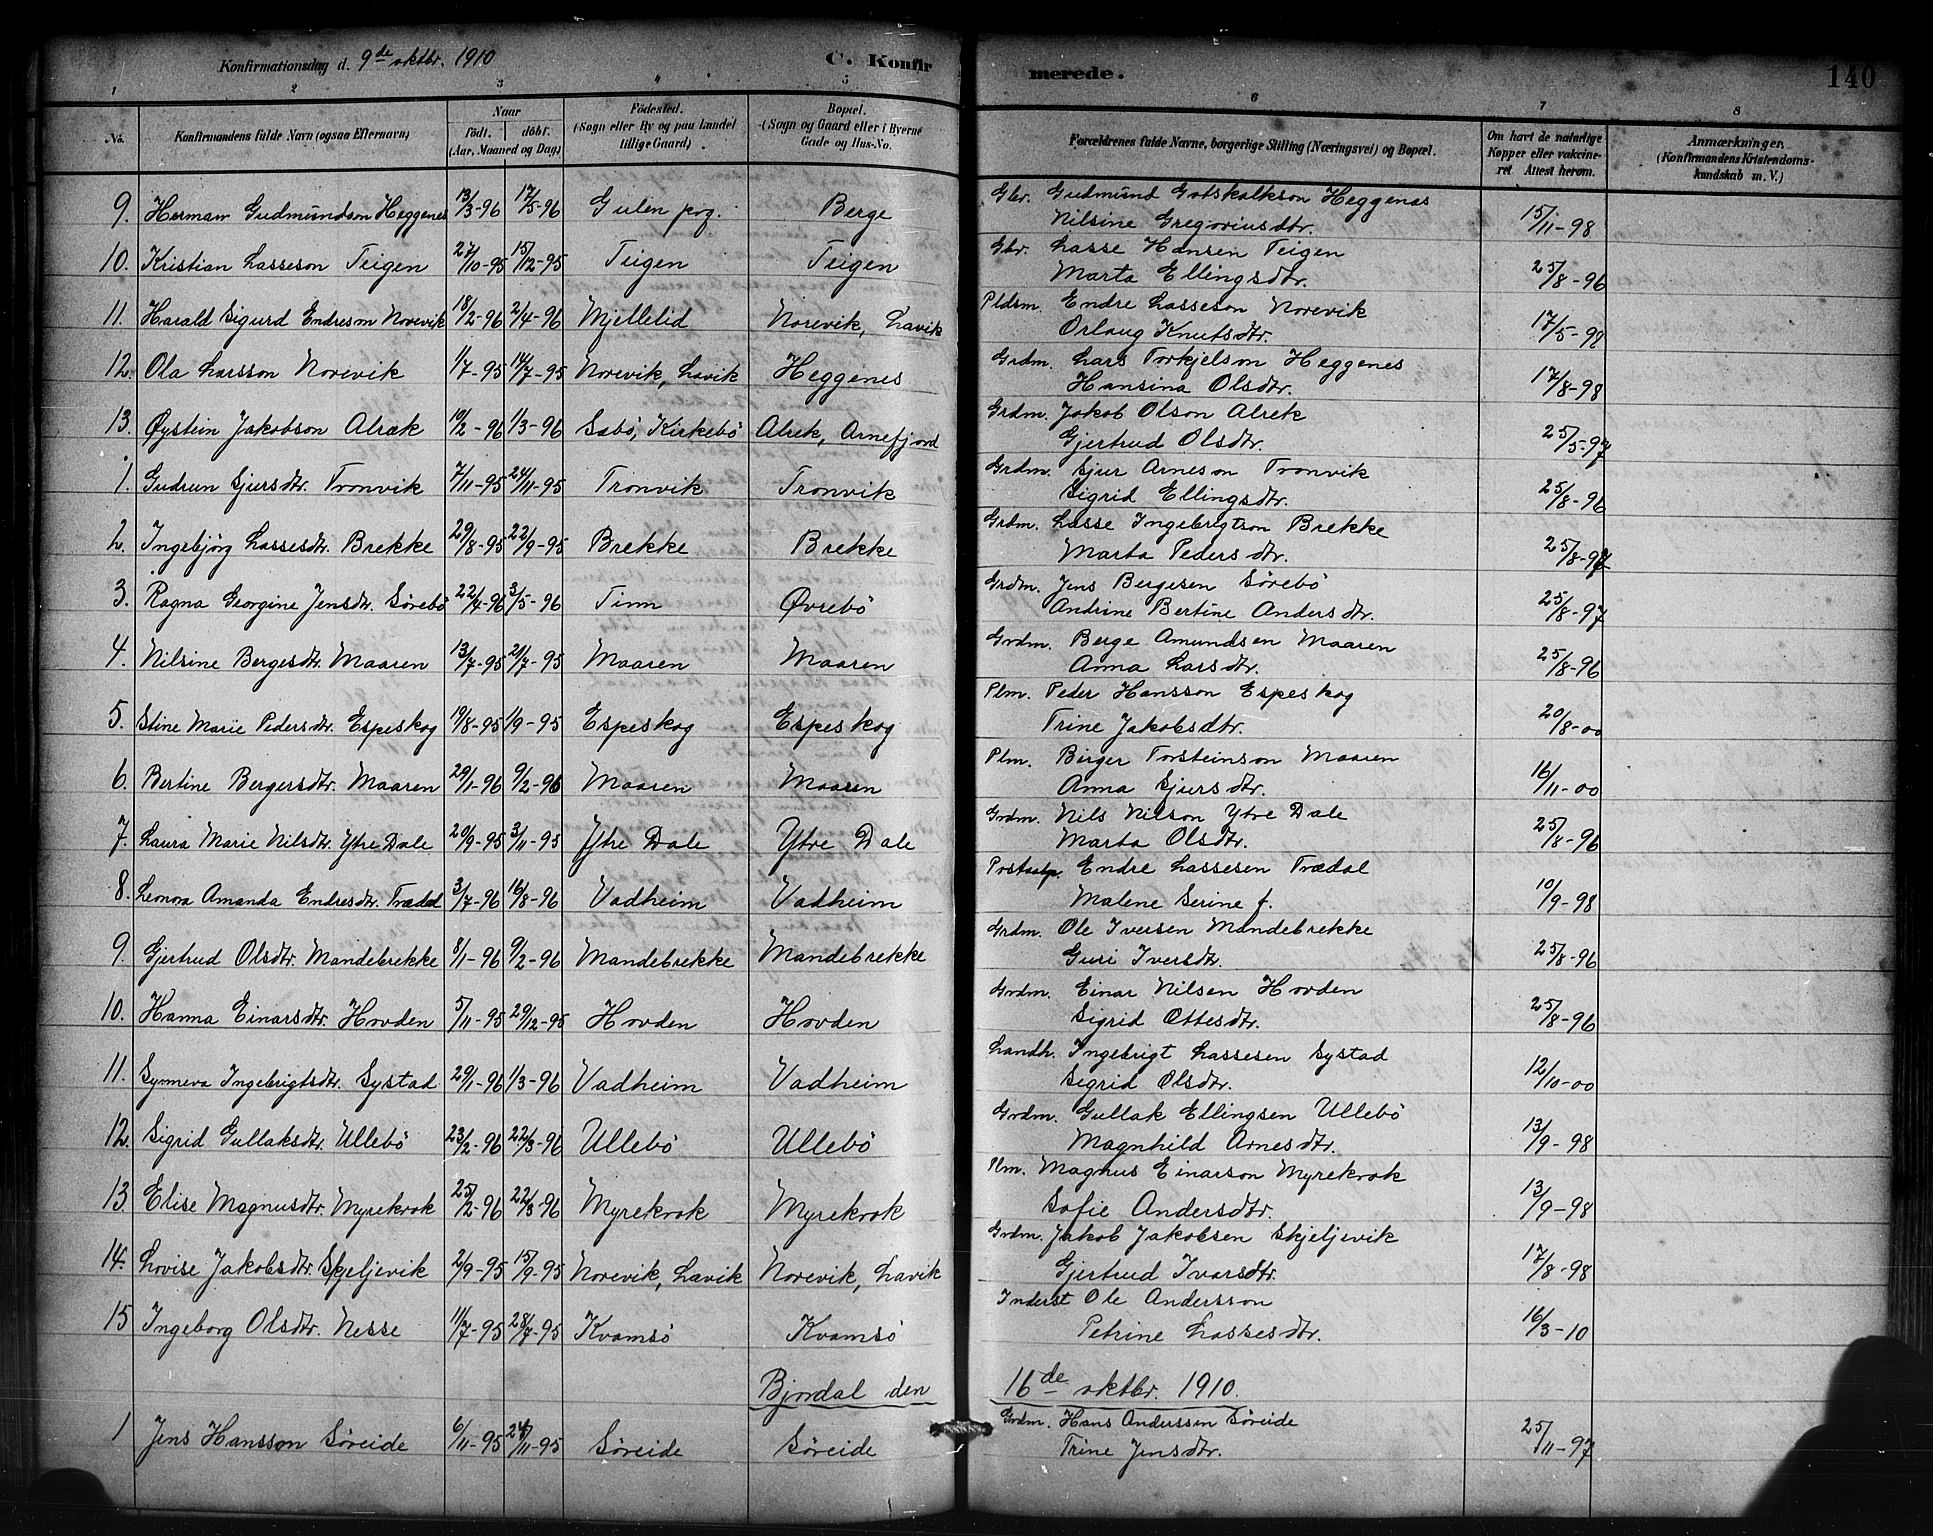 Konfirmationsdag d. 9de oktbr. 1910 C. Konfirmerede. 140
1 2 3 4 5 6 7 8
No. Konfirmandens fulde Navn (ogsaa Efternavn) Naar födt. döbt. (Aar, Maaned og Dag) Födested. (Sogn eller By og paa Landet tillige Gaard) Bopæl. (Sogn og Gaard eller i Byerne Gade og Hus-No. Forældrenes fulde Navne, borgerlige Stilling (Næringsvei) og Bopæl. Om havt de naturlige Kopper eller vakcineret. Attest herom. Anmærkninger. (Konfirmandens Kristendomskundskab m. V.)
9. Herman Gudmundson Heggenes 13/3-96 17/5-96 Gulen prg. Berge Gbr. Gudmund Gotskalkson Heggenes 15/11-98
Nilsine Gregoriusdtr.
10. Kristian Lasseson Teigen 27/10-95 15/12-95 Teigen Teigen Gbr. Lasse Hansen Teigen 25/8-96
Marta Ellingsdtr.
11. Harald Sigurd Endreson Norevik 18/2-96 2/4-96 Mjellelid Norevik, Lavik Pldsm. Endre Lasseson Norevik 17/5-98
Orlaug Knutsdtr.
12. Ola Larsson Norevik 1/7-95 14/7-95 Norevik, Lavik Heggenes Grdm. Lars Torkjelson Heggenes 17/8-98
Hansina Olsdtr.
13. Øystein Jakobson Alræk 10/2-96 1/3-96 Sæbö, Kirkebö Alrek, Arnefjord Grdm. Jakob Olson Alrek 25/5-97
Gjertrud Olsdtr.
1. Gudrun Sjursdtr. Tronvik 7/11-95 24/11-95 Tronvik Tronvik Grdm. Sjur Arneson Tronvik 25/8-96
Sigrid Ellingsdtr.
2. Ingebjörg Lassesdtr. Brekke 29/8-95 22/9-95 Brekke Brekke Grdm. Lasse Ingebrigtson Brekke 25/8-97
Marta Pedersdtr.
3. Ragna Georgine Jensdtr. Sörebö 22/4-96 3/5-96 Tinn Øvrebö Grdm. Jens Bergesen Sörebö 25/8-97
Andrine Bertine Andersdtr.
4. Nilsine Bergesdtr. Maaren 13/7-95 21/7-95 Maaren Maaren Grdm. Berge Amundsen Maaren 25/8-96
Anna Larsdtr.
5. Stine Marie Pedersdtr. Espeskog 19/8-95 1/9-95 Espeskog Espeskog Plm. Peder Hansson Espeskog 20/8-00
Trine Jakobsdtr.
6. Bertine Bergersdtr. Maaren 29/1-96 9/2-96 Maaren Maaren Plm. Birger Torsteinson Maaren 16/11-00
Anna Sjursdtr.
7. Laura Marie Nilsdtr. Ytre Dale 20/9-95 3/11-95 Ytre Dale Ytre Dale Grdm. Nils Nilson Ytre Dale 25/8-96
Marta Olsdtr.
8. Leonora Amanda Endresdtr. Trædal 3/7-96 16/8-96 Vadheim Vadheim Endre Lassesen Trædal 10/9-98
Malene Serine f.
9. Gjertrud Olsdtr. Mandebrekke 8/1-96 9/2-96 Mandebrekke Mandebrekke Grdm. Ole Iversen Mandebrekke 25/8-96
Guri Iversdtr.
10. Hanna Einarsdtr. Hovden 5/11-95 29/12-95 Hovden Hovden Grdm. Einar Nilsen Hovden 25/8-96
Sigrid Ottesdtr.
11. Synneva Ingebrigtsdtr. Systad 29/1-96 1/3-96 Vadheim Vadheim Landh. Ingebrigt Lassesen Systad 12/10-00
Sigrid Olsdtr.
12. Sigrid Gullaksdtr. Ullebö 23/2-96 22/3-96 Ullebö Ullebö Grdm. Gullak Ellingsen Ullebö 13/9-98
Magnhild Arnesdtr.
13. Elise Magnusdtr. Myrekrok 25/2-96 22/3-96 Myrekrok Myrekrok Plm. Magnus Einarson Myrekrok 13/9-98
Sofie Andersdtr.
14. Lovise Jakobsdtr. Skjeljevik 2/9-95 15/9-95 Norevik, Lavik Norevik, Lavik Grdm. Jakob Jakobsen Skjeljevik 17/8-98
Gjertrud Ivarsdtr.
15 Ingeborg Olsdtr. Nesse 11/7-95 28/7-95 Kvamsö Kvamsö Inderst Ole Andersson 16/3-10
Petrine Lassesdtr.
Bjordal den 16de oktbr. 1910.
1 Jens Hansson Söreide 6/11-95 24/11-95 Söreide Söreide Grdm. Hans Anderssen Söreide 25/11-97
Trine Jensdtr.